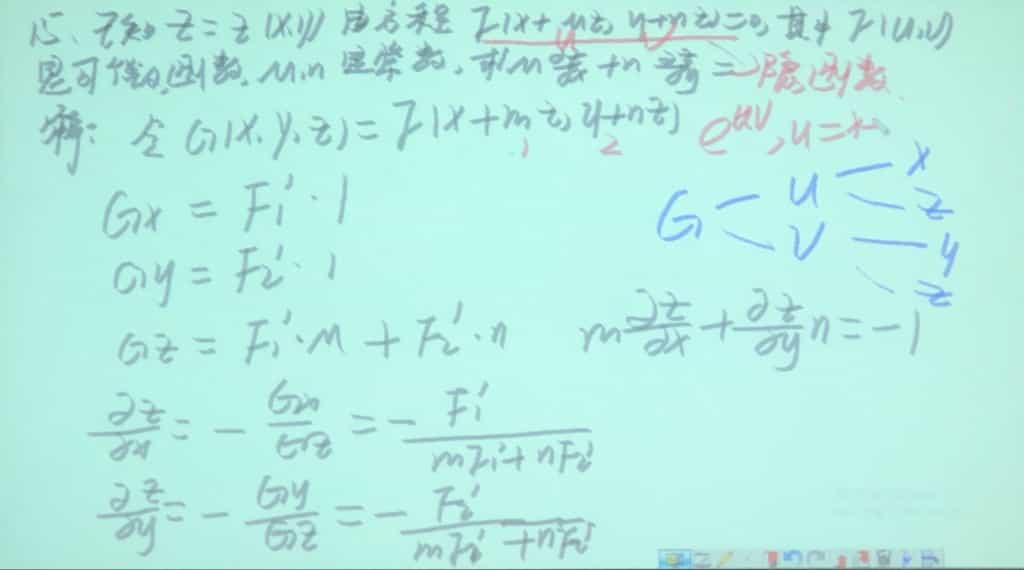 15、已知 z = z(x,y) 由方程 F(x+mz, y+nz)=0, 其中 F(u,v)
是可微的函数, m,n 是常数, 求 m ∂z/∂x + n ∂z/∂y = 隐函数
解: 令 G(x,y,z) = F(x+mz, y+nz) e^{uv}, u=x
1 2
Gx = F₁′·1
G < u < x z
v < y z
Gy = F₂′·1
Gz = F₁′·m + F₂′·n
m ∂z/∂x + ∂z/∂y n = -1
∂z/∂x = - Gx/Gz = - F₁′/(mF₁′+nF₂′)
∂z/∂y = - Gy/Gz = - F₂′/(mF₁′+nF₂′)